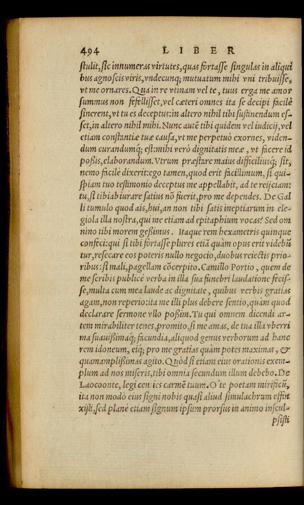 494 LIBER
stulit, sic innumeras virtutes, quas fortasse singulas in aliqui
bus agnoscis viris, vndecunq; mutuatum mihi vni tribuisse,
vt me ornares. Qua in re vtinam vel te, tuus erga me amor
summus non fefellisset, vel cæteri omnes ita se decipi facilè
sinerent, vt tu es deceptus: in altero nihil tibi sustinendum es-
set, in altero nihil mihi. Nunc autē tibi quidem vel iudicij, vel
etiam constantiæ tuæ causa, vt me perpetuò exornes, viden-
dum curandumq; est: mihi verò dignitatis meæ, vt facere id
possis, elaborandum. Vtrum præstare maius difficiliusq; sit,
nemo facile dixerit: ego tamen, quod erit facillimum, si quis-
piam tuo testimonio deceptus me appellabit, ad te reijciam:
tu, si tibi abiurare satius nō fuerit, pro me dependes. De Gal
li tumulo quod ais, hui, an non tibi satis ineptiarum in ele-
giola illa nostra, qui me etiam ad epitaphium vocas? Sed om
nino tibi morem geßimus. Itaque rem hexametris quinque
confeci: qui si tibi fortasse plures etiā quàm opus erit videbū
tur, resecare eos poteris nullo negocio, duobus reiectis prio-
ribus: si mali, pagellam cōcerpito. Camillo Portio, quem de
me scribis publicè verba in illa sua funebri laudatione fecis-
se, multa cum mea laude ac dignitate, quibus verbis gratias
agam, non reperio: ita me illi plus debere sentio, quàm quod
declarare sermone vllo poßim. Tu qui omnem dicendi ar-
tem mirabiliter tenes, promito, si me amas, de tua illa vberri
ma suauißimaq; facundia, aliquod genus verborum ad hanc
rem idoneum, eiq; pro me gratias quàm potes maximas, &
quàm amplißimas agito. Quòd si etiam eius orationis exem-
plum ad nos miseris, tibi omnia secundum illum debebo. De
Laocoonte, legi centies carmē tuum. O te poetam mirificū,
ita non modò eius signi nobis quasi aliud simulachrum effin
xisti, sed planè etiam signum ipsum prorsus in animo inscul-
psisti